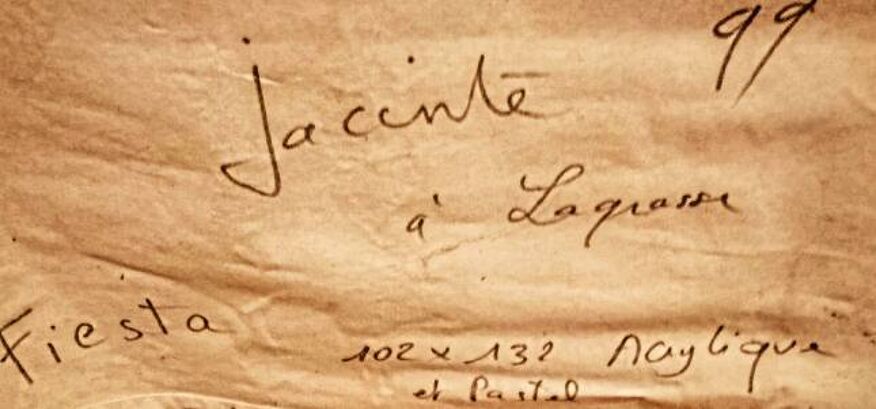 99
Jacinte
à Lagrasse
Fiesta
102 x 132 Acrylique
et Pastel